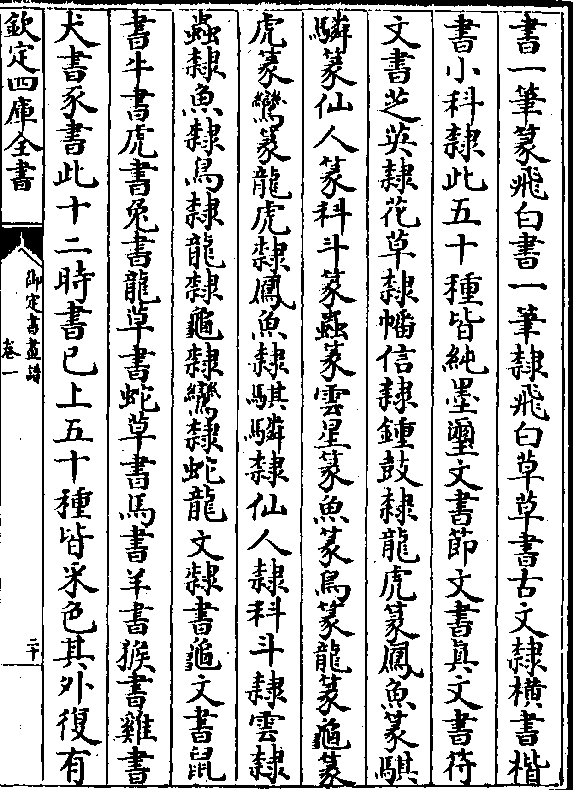 書一筆篆飛白書一筆隸飛白草草書古文隸橫書楷
書小科隸此五十種皆純墨璽文書節文書真文書符
文書芝英隸花草隸幡信隸鍾鼓隸龍虎篆鳳魚篆騏
驎篆仙人篆科斗篆蟲篆雲星篆魚篆鳥篆龍篆龜篆
虎篆鸞篆龍虎隸鳳魚隸騏驎隸仙人隸科斗隸雲隸
蟲隸魚隸鳥隸龍隸龜隸鸞隸蛇龍文隸書龜文書鼠
書牛書虎書兔書龍草書蛇草書馬書羊書猴書雞書
犬書豕書此十二時書已上五十種皆采色其外復有
欽定四庫全書
御定書畫譜
卷一
二十